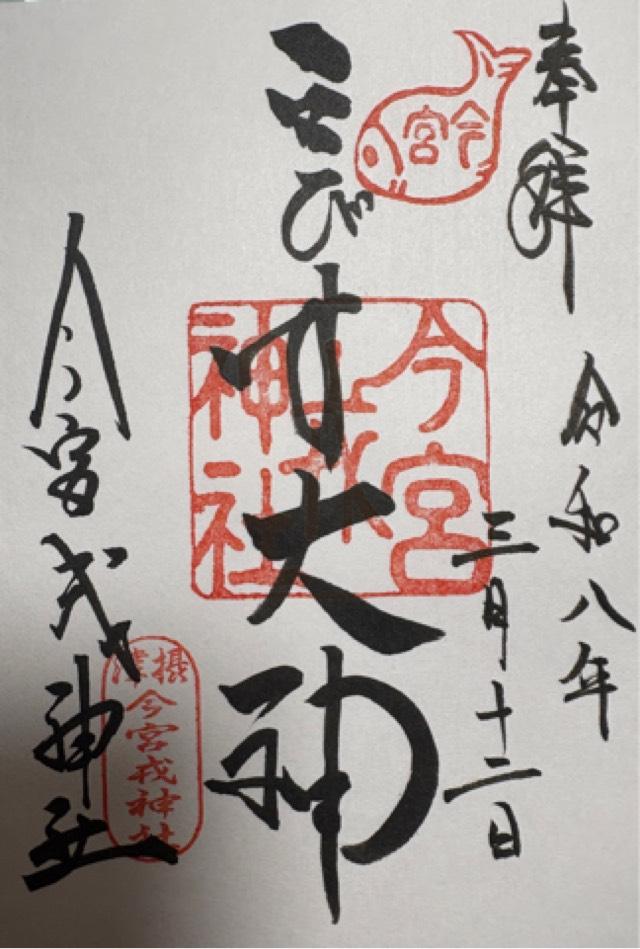 奉拝
令和八年
三月十二日
今宮
ゑびす大神
今宮戎神社
今宮戎神社
摂津
今宮戎神社